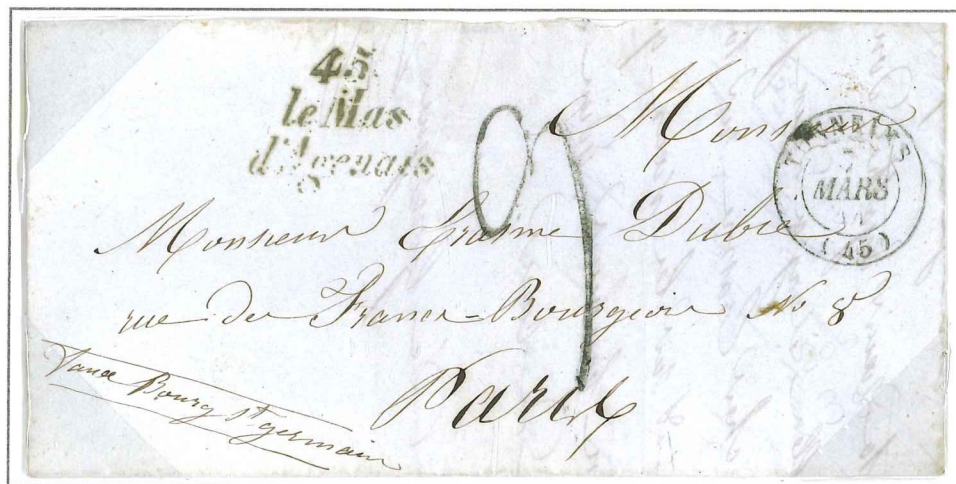 45
le Mas
d'Agenais
TONNEINS
MARS
(45)
9
Monsieur
Monsieur Erasme Dubre
rue des Francs-Bourgeois No 8
Bourg St germain
Paris